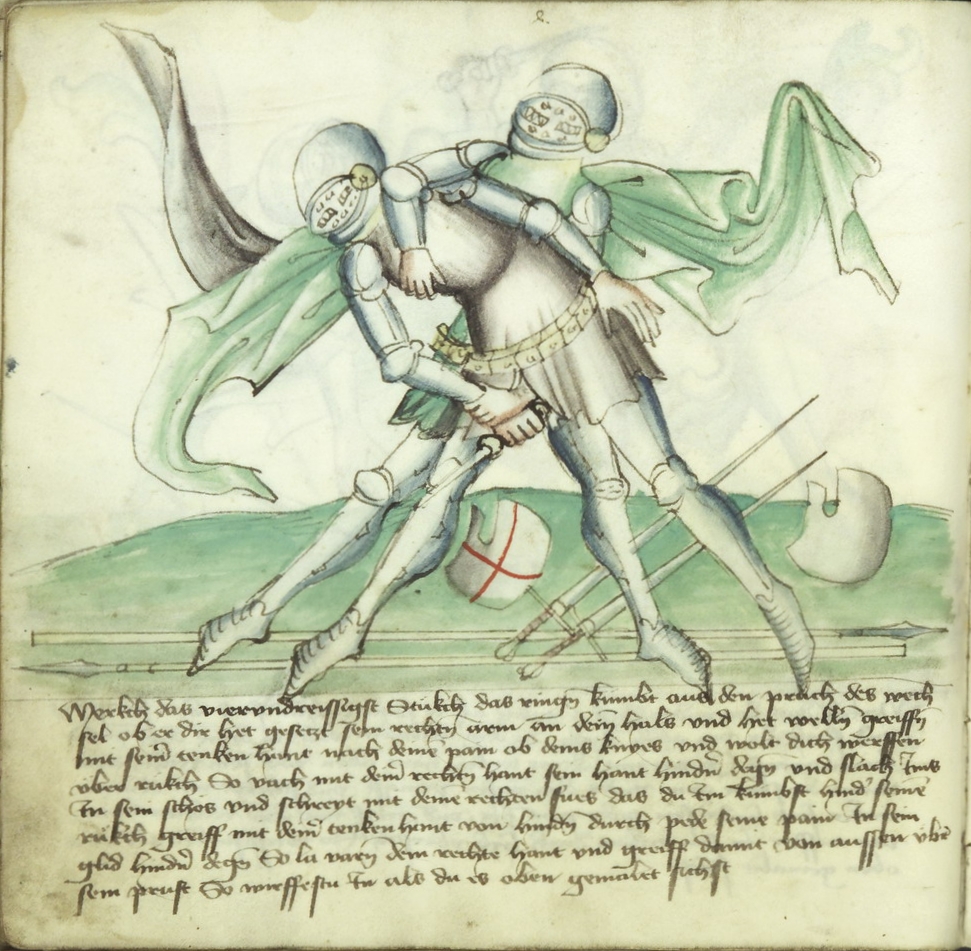 Merkch das vierundreissigist Stukch das ringn kumbt aus den pruch des wech
sel ob er dir het gesetzt sein rechtn arm an dein hals und het welln greiffn
mit seim tenken hant nach deine pain ob deins knyes und wolt dich werffen
uber rukch So vach mit deim rechtn hant sein hant hindn degn und slach Ims
In sein schos und schreyt mit deine rechten fues das du Im kumbst hind seine
rukch greiff mit deim tenken hant von hindn durch pede seine pain In sein
glid hindn degn So la varn dein rechte hant und greiff damit von aussen ubr
sein prust So wirffestu In als du es oben gemalet sichst